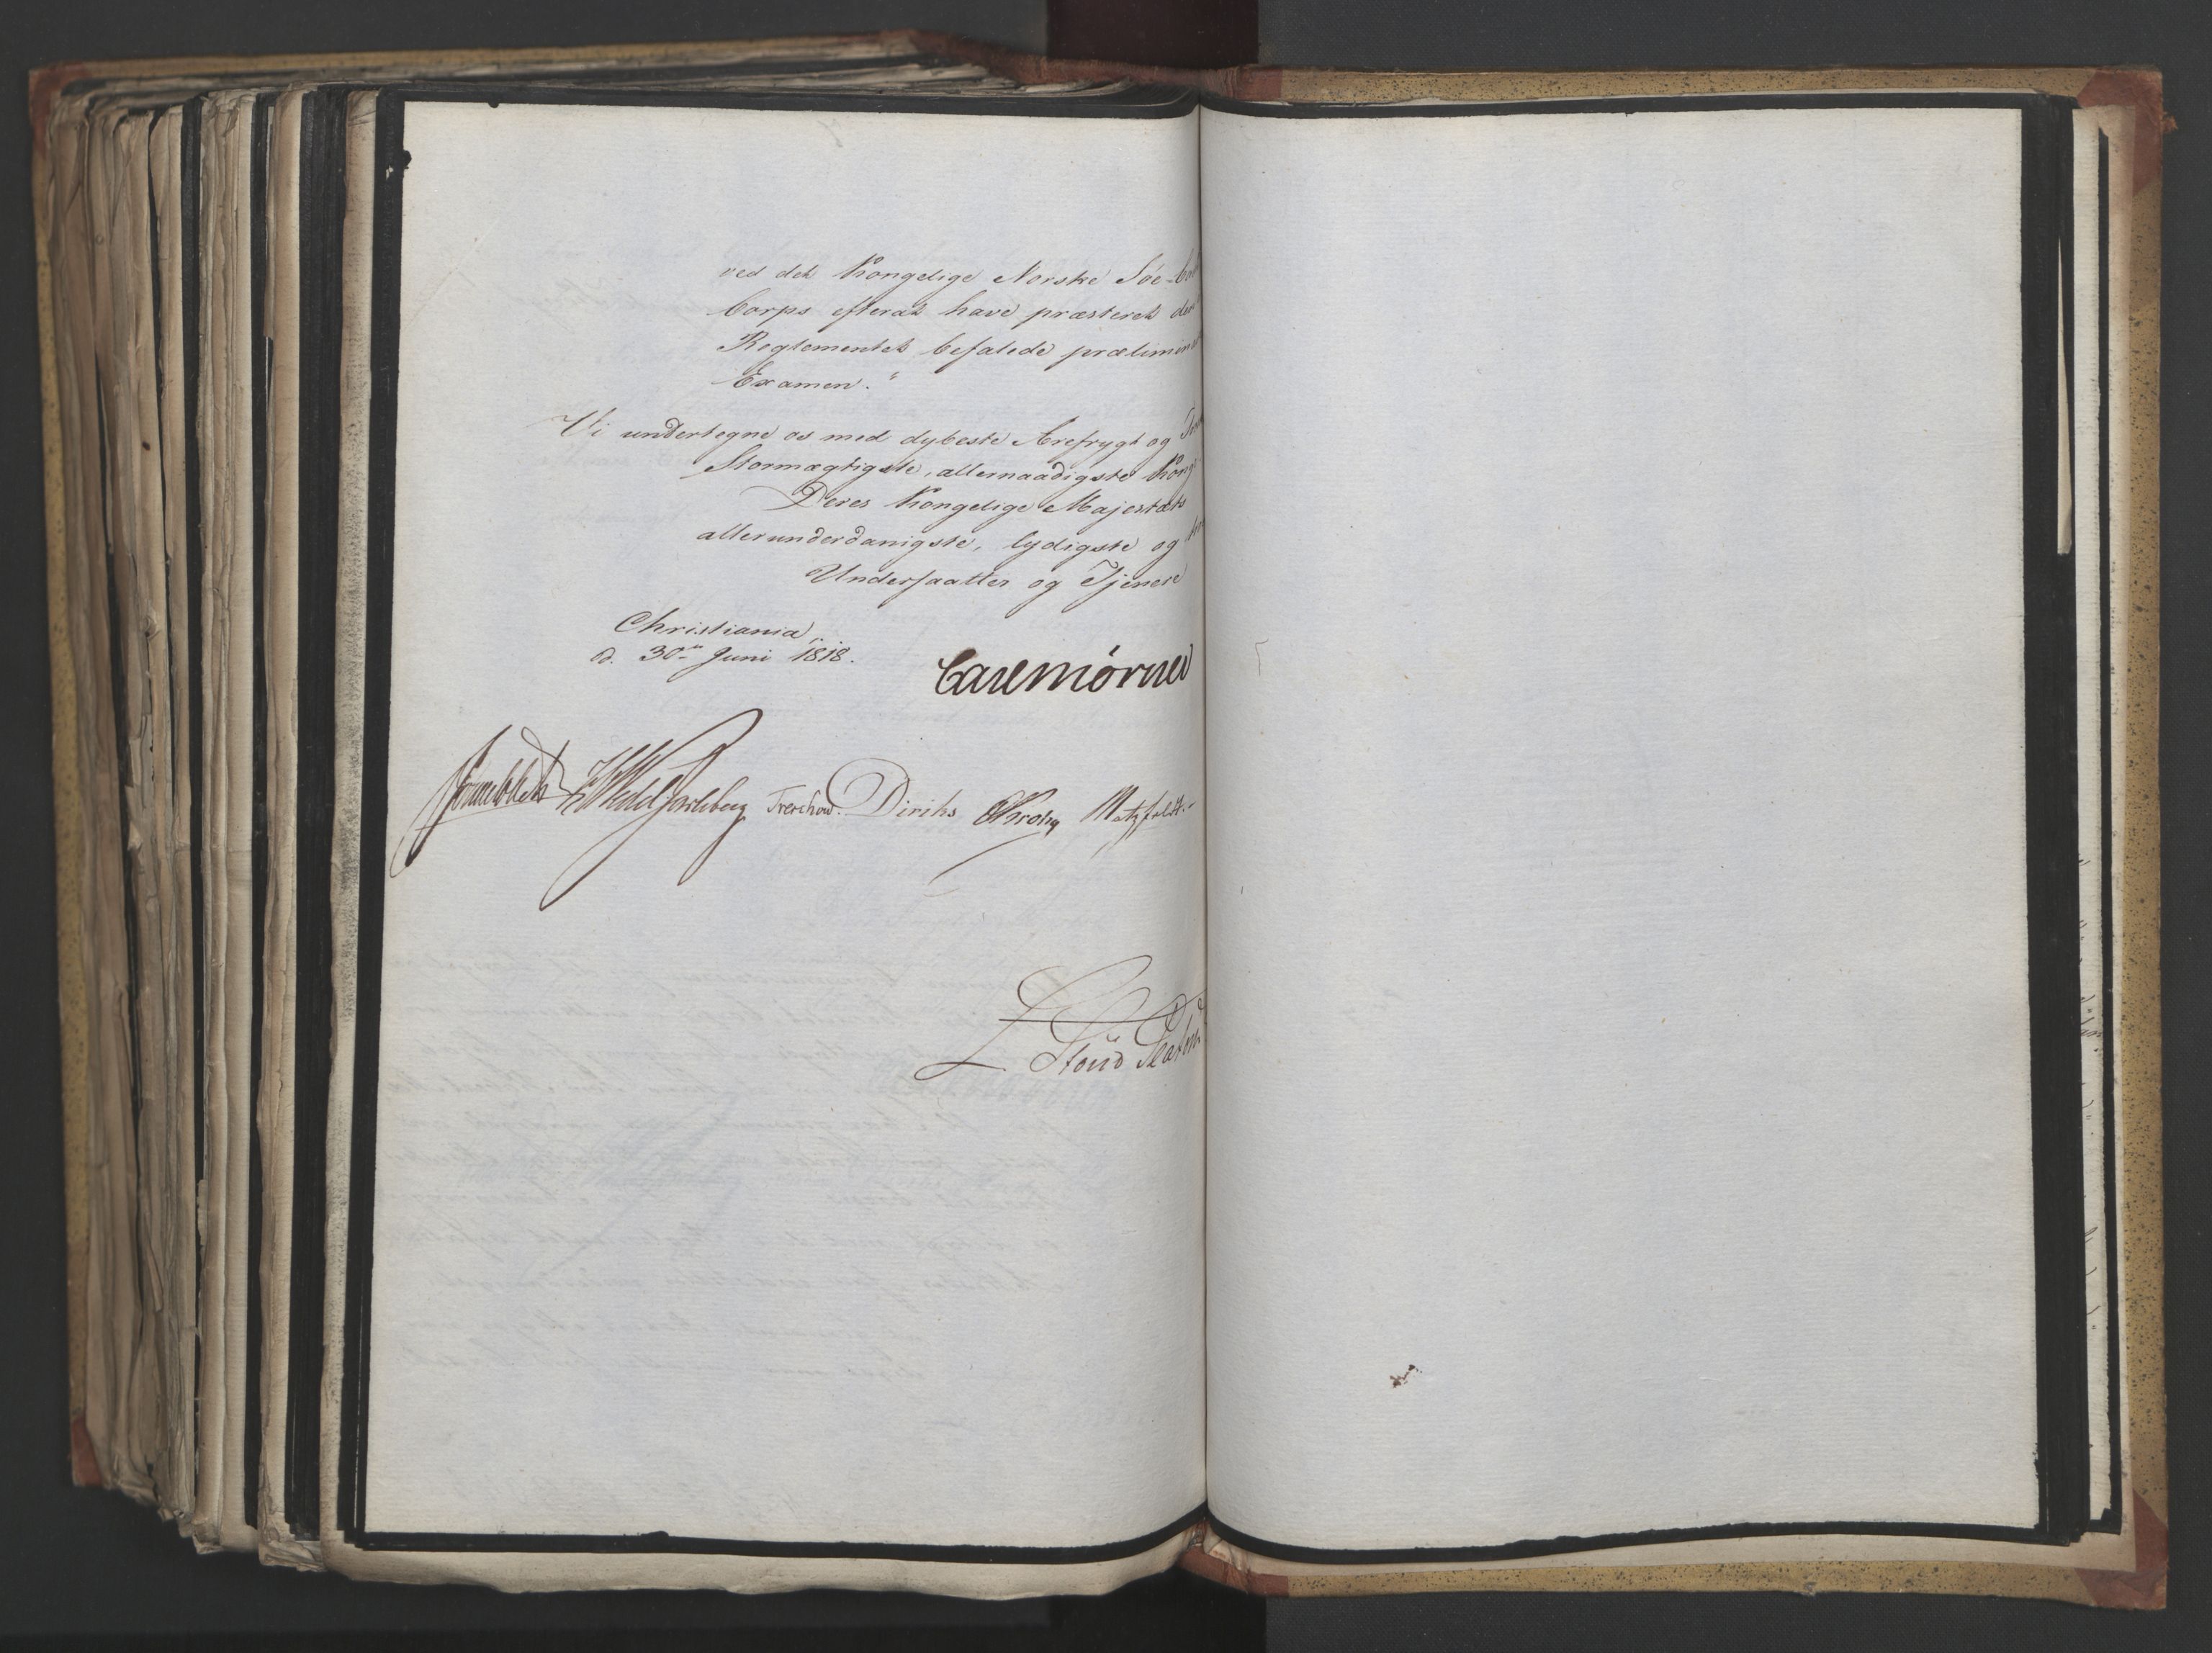 ved det Kongelige Norske Søe-Cad
Corps efterat have præsteret den
Reglementet befalede prælimin
Examen."
Vi undertegne os med dybeste Ærefrygt og
Stormægtigste, allernaadigste Kong
Deres Kongelige Majestæts
allerunderdanigste, lydigste og
Undersaatter og Tjenere
Christiania,
d. 30te Juni 1818.
Carl Mörner
Sommerhielm HWedelJarlsberg Treschow. Diriks CKrohg Motzfeldt.
Stoud Platou